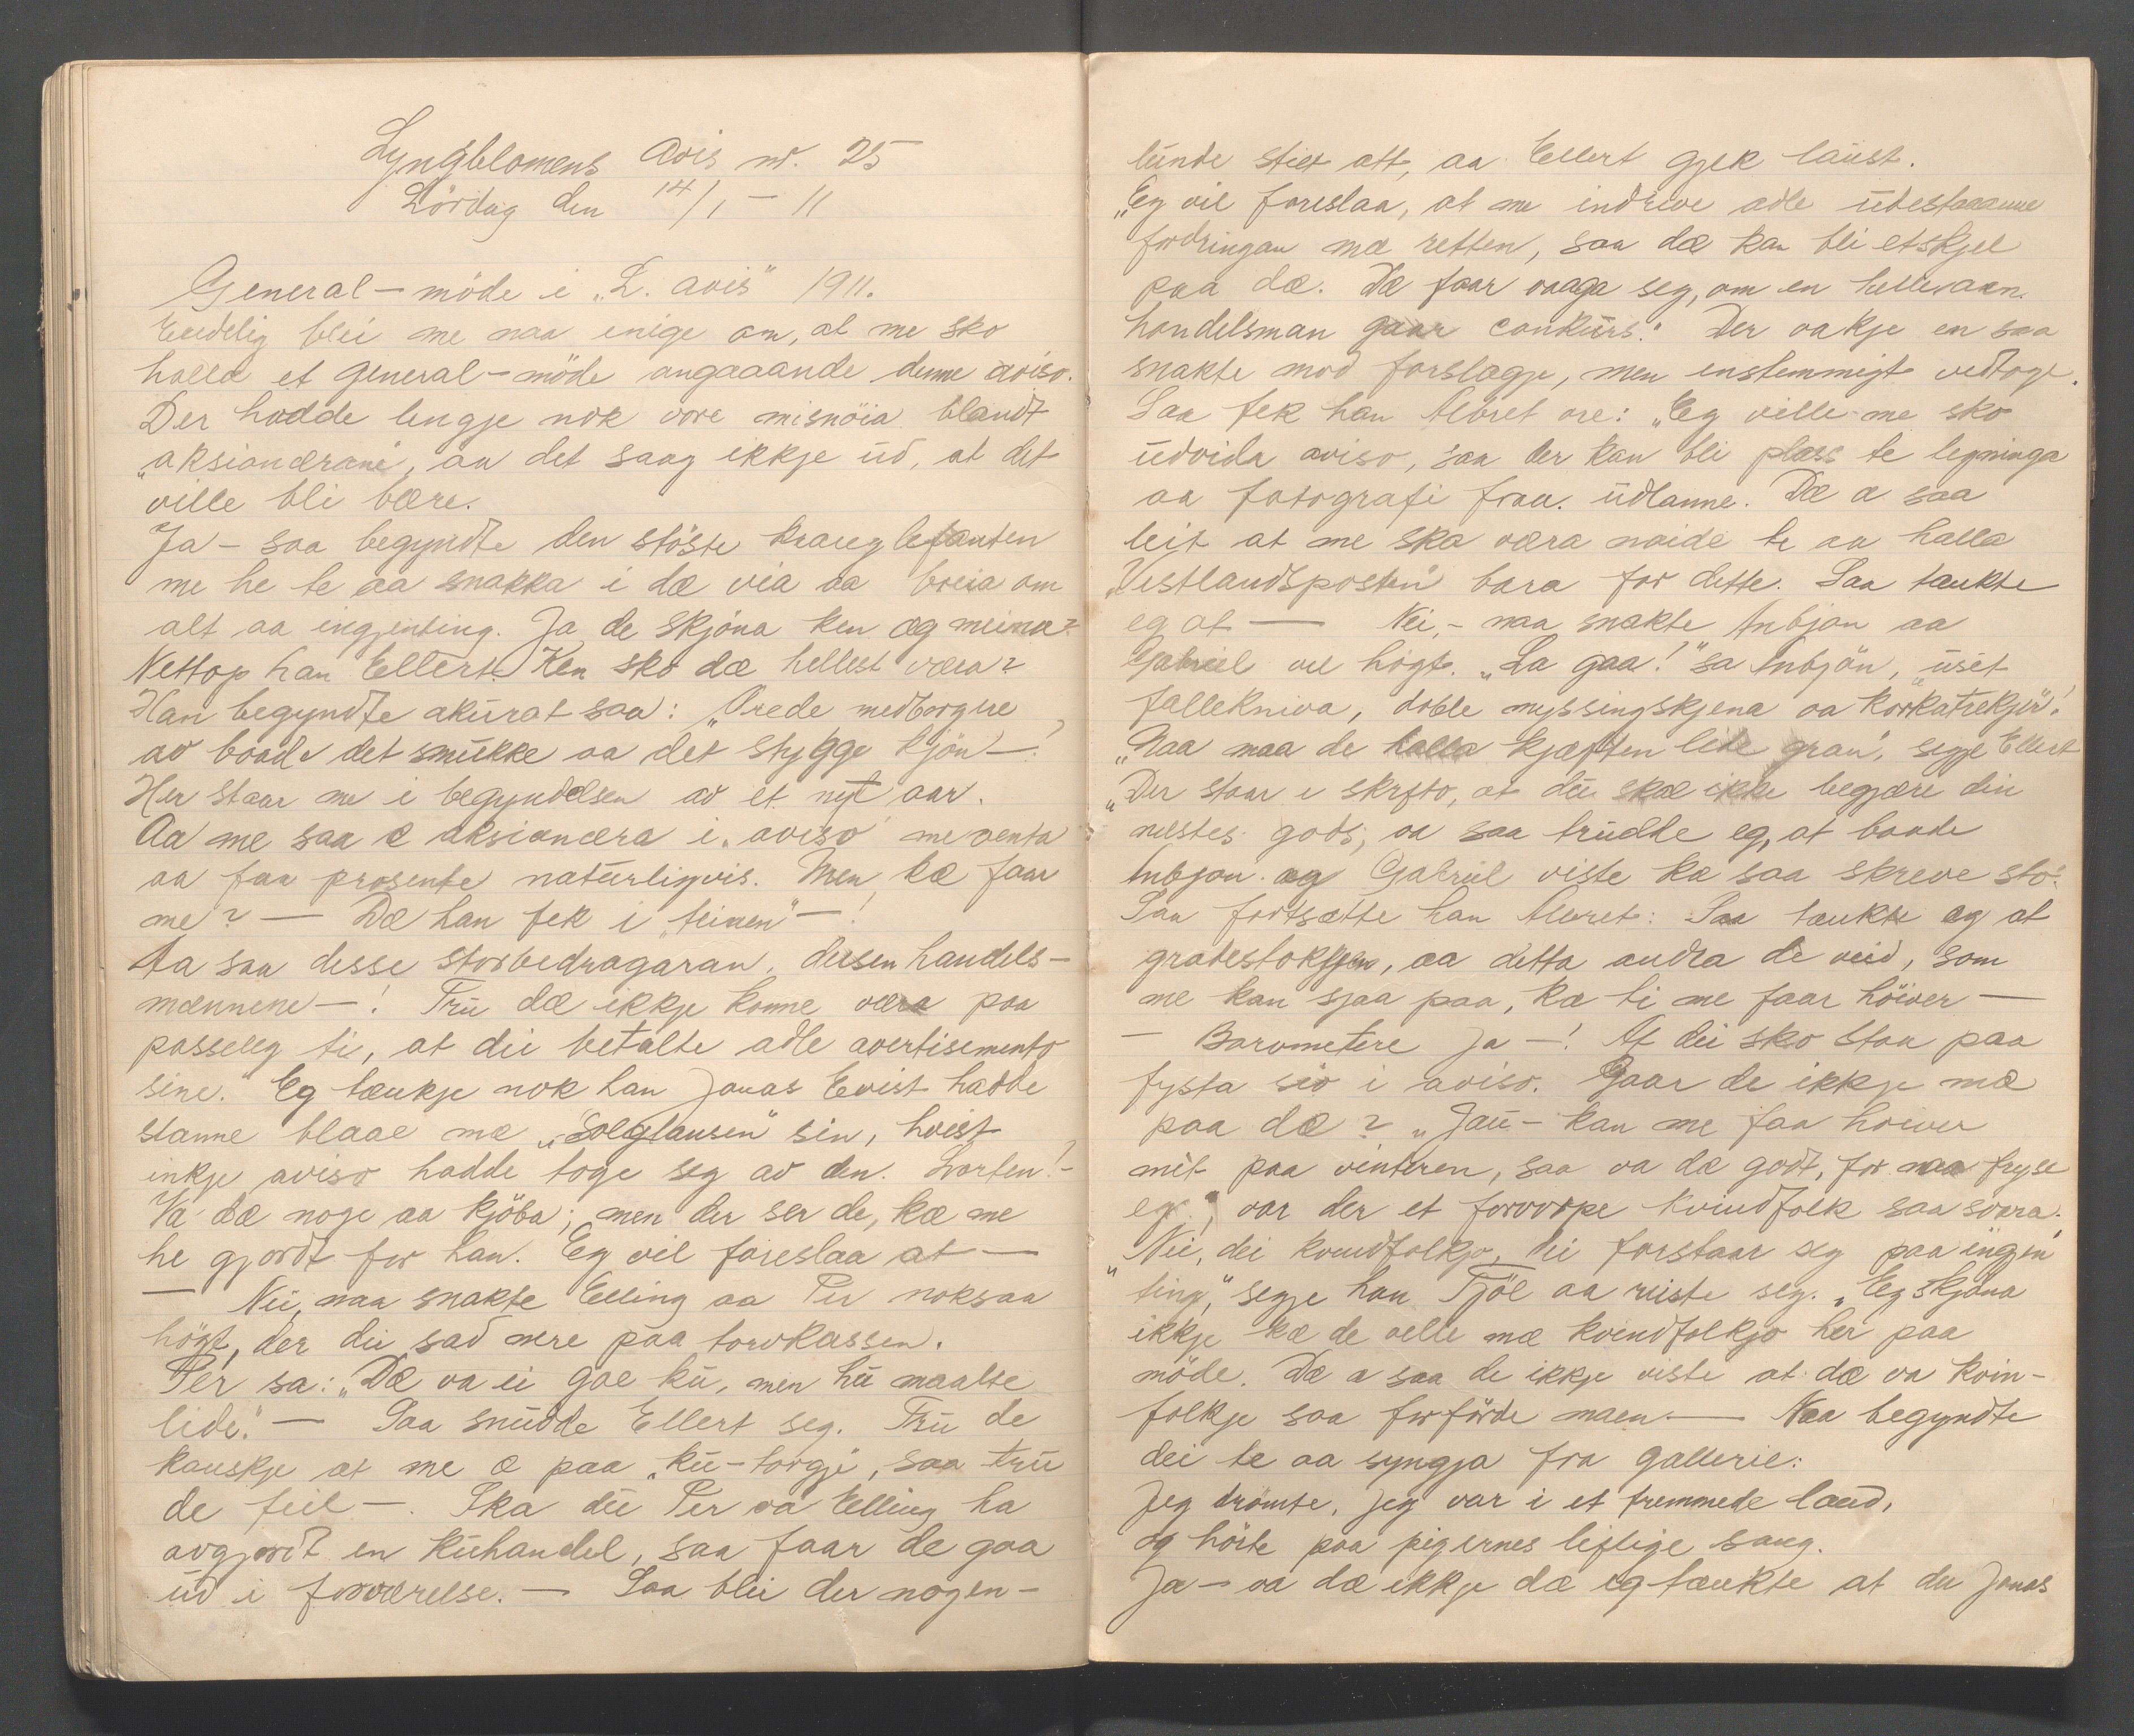 Lyngblomens avis nr. 25
Lördag den 14/1 - 11
General-möde i „L. avis" 1911.
Endelig blei me naa enige om, at me sko
halla et general-möde angaaande denne aviso.
Der hadde lengje nok vore misnöia blandt
„aksionærane", aa det saag ikkje ud, at det
ville bli bære.
Ja - saa begyndte den störste kranglefanten
me he te aa snakka i dæ via aa breia om
alt aa ingjenting. Ja de skjöna ken eg meina?
Nettop han Ellert. Ken sko dæ hellest væra?
Han begyndte akurat saa: „Ærede medborgere
av baade det smukke aa det stygge kjön -!
Her staar me i begyndelsen av et nyt aar.
Aa me saa e aksionæra i „aviso" me venta
aa faa prosente naturligvis. Men, kæ faar
me? - Dæ han fek i „teinen" - !
Aa saa desse storbedragaran, dersen handels-
mænnene - ! Tru dæ ikkje konne væra paa
passeleg ti, at dei betalte adle avertisemento
sine." Eg tænkje nok han Jonas Kvist hadde
stanne blaae mæ „Solglansen" sin, hvist
inkje aviso hadde toge seg av den. Lorten! -
Va' dæ noge aa kjöba; men der ser de, kæ me
he gjordt for han. Eg vil foreslaa at -
- Nei, naa snakte Elling aa Per noksaa
högt, der dei sad nere paa torvkassen.
Per sa: „Dæ va ei goe ku, men hu maalte
lide." - Saa snudde Ellert seg. Tru de
kanskje at me e paa „ku-torgje", saa tru
de feil -. Ska dei Per aa Elling ha
avgjordt en kuhandel, saa faar de gaa
ud i forværelse. - Saa blei der nogen-
lunde stilt att, aa Ellert gjek laust.
„Eg vil foreslaa, at me indrive adle udestaaanne
fordringan mæ retten, saa dæ kan bli etskjel
paa dæ. Dæ faar vaaga seg, om en hellevaen
handelsman gaar conkurs." Der vakje en saa
snakte mod forslagje, men enstemmigt vedtoge.
Saa fek han Albret ore: „Eg ville me sko
udvida aviso, saa der kan bli plass te tegninga
aa fotografi fraa udlanne. Dæ e saa
leit at me ska væra noide te aa halla
„Vestlandsposten" bara for dette. Saa tænkte
eg at - Nei, - naa snakte Anbjön aa
Gabriel vel högt. „La gaa!" sa Anbjön, „uset
fallekniva, doble myssingskjena aa korkatrekjer!
„Naa maa de halla kjæften lide gran", segje Ellert
„Der staar i skrifto, at du skæ ikke begjære din
nestes gods, aa saa trudde eg, at baade
Anbjön og Gabriel viste ka saa skreve sto."
Saa fortsætte han Albret: Saa tænkte eg at
gradestokkjen, aa detta andra de veid, som
me kan sjaa paa, kæ ti me faar höiver -
- Barometere ja - ! At dei sko staa paa
fysta sio i aviso. Gaar de ikkje mæ
paa dæ? „Jau - kan me faa hoiver
mit paa vinteren, saa va dæ godt, for naa fryse
eg", var der et kvindfolk saa svara.
„Nei, dei kvendfolkjo, dei forstaar seg paa ingjen
ting," segje han Tjöl aa reiste seg. „Eg skjöna
ikkje kæ de velle mæ kvendfolkjo her paa
möde. Dæ e saa de ikkje viste at dæ va kvin-
folkje saa forförde maen. - Naa begyndte
dei te aa syngja fra gallerie:
Jeg drömte, jeg var i et fremmede land,
og hörte paa pigernes liflige sang.
Ja - va dæ ikkje dæ eg tænkte at du Jonas